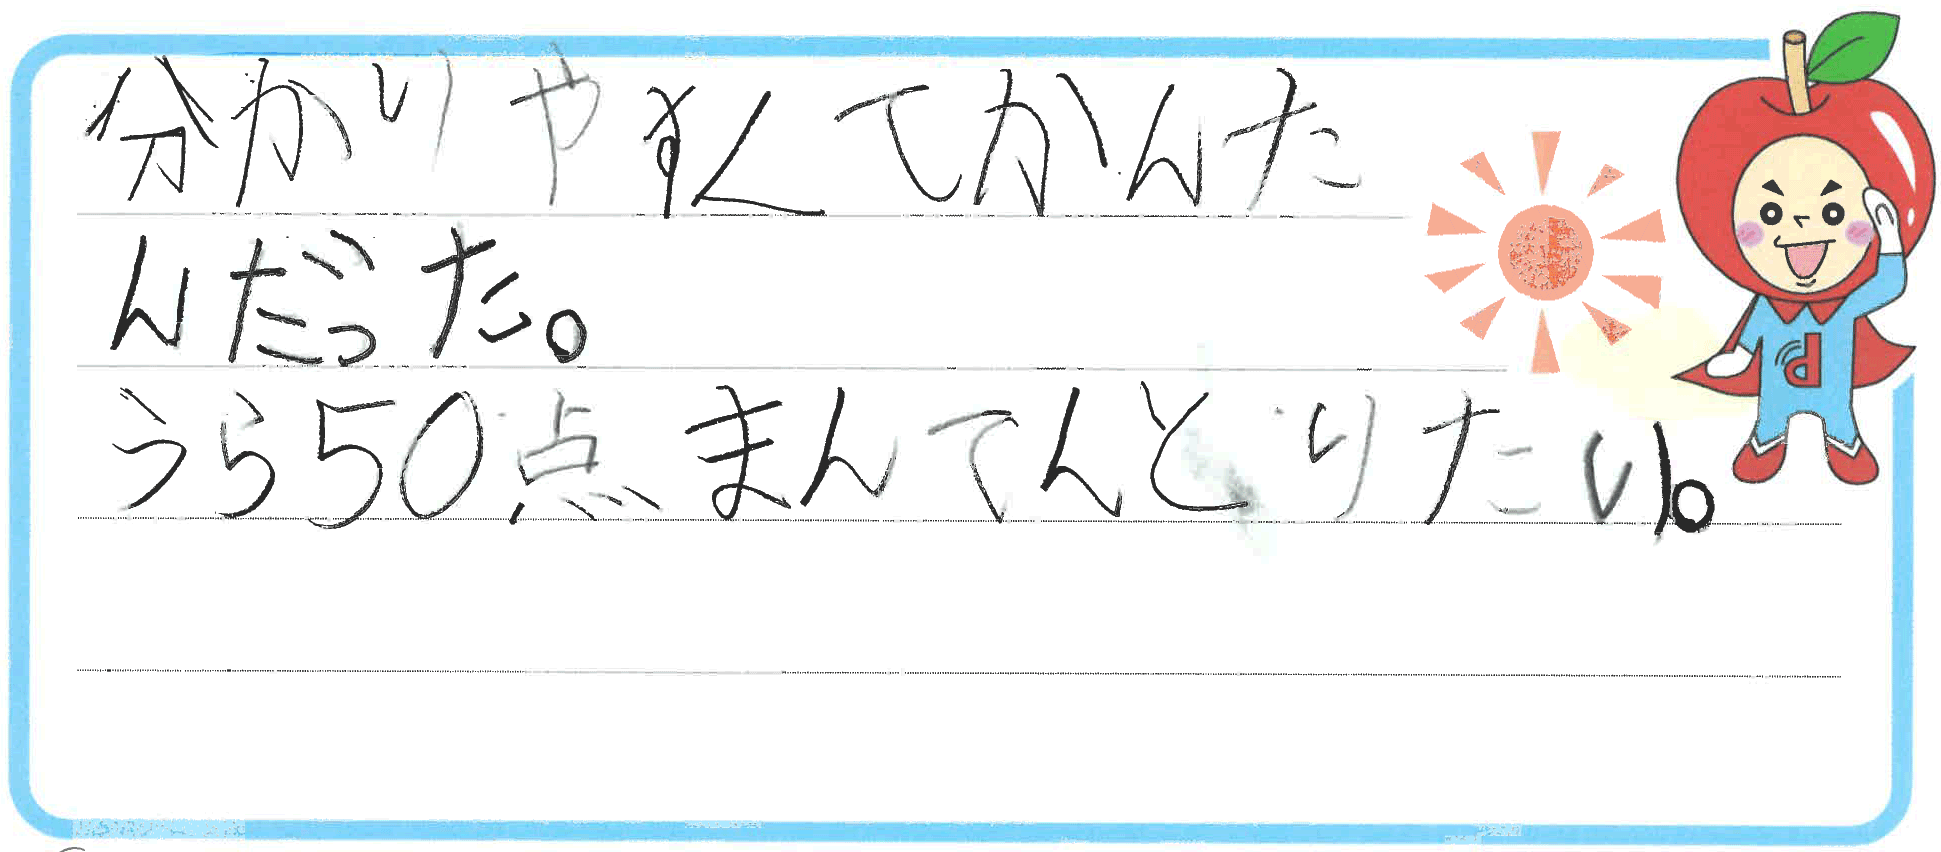 分かりやすくてかんた
んだった。
うら50点まんてんとりたい。